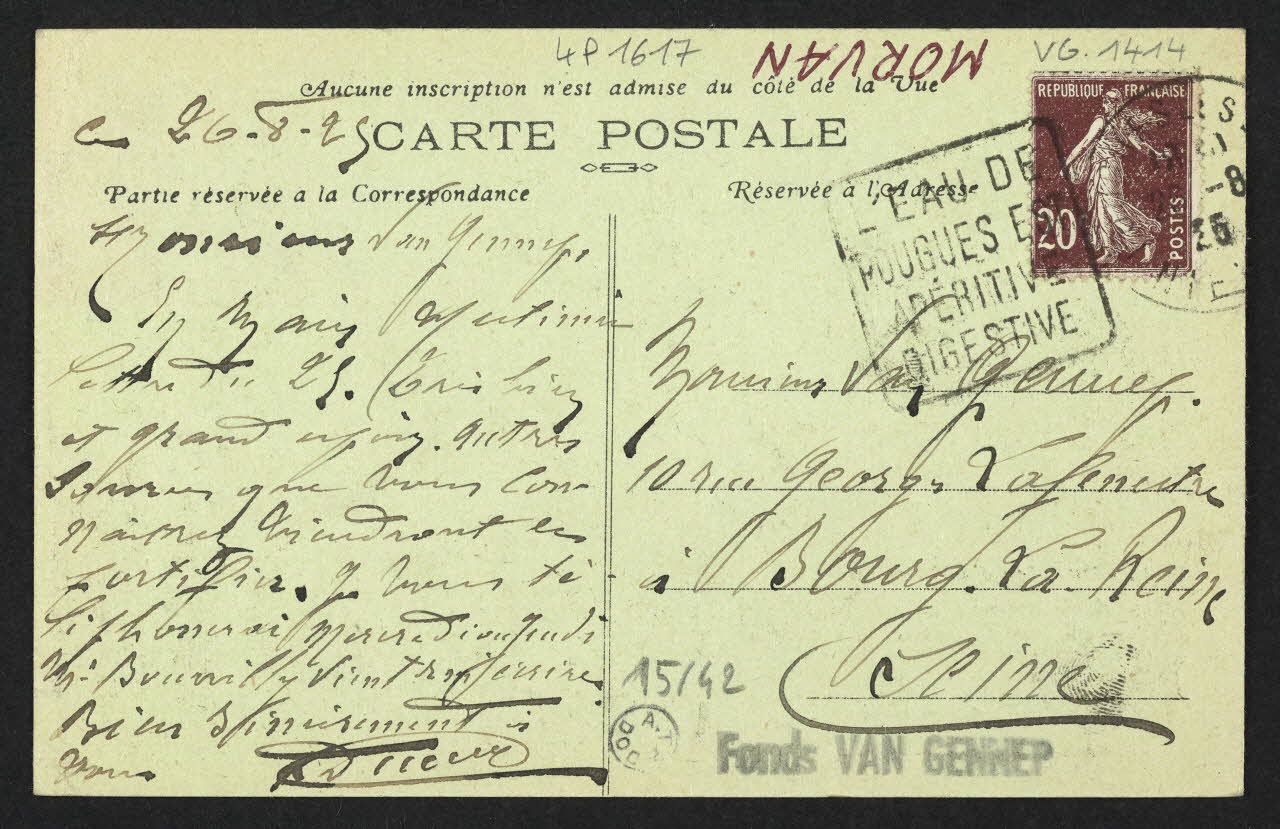 4P1617
MORVAN
VG.1414
Aucune inscription n'est admise du côté de la Vue
ce 26-8-25
CARTE POSTALE
Partie réservée a la Correspondance
Réservée à l'Adresse
RÉPUBLIQUE FRANÇAISE
20
POSTES
L'EAU DE
POUGUES EST
APÉRITIVE
DIGESTIVE
-8
25
Monsieur Van Gennep,
En mains
lettre du 25. Très bien
et grand espoir. Autres
que vous con
naitrez viendront les
fortifier. Je vous té
léphonerai mercredi ou jeudi
Mr
Bien sincèrement à
vous
Monsieur Van Gennep.
10 rue Georges Lafenestre
à Bourg-La-Reine
Seine
15/42
A.T.P
DOC
Fonds VAN GENNEP